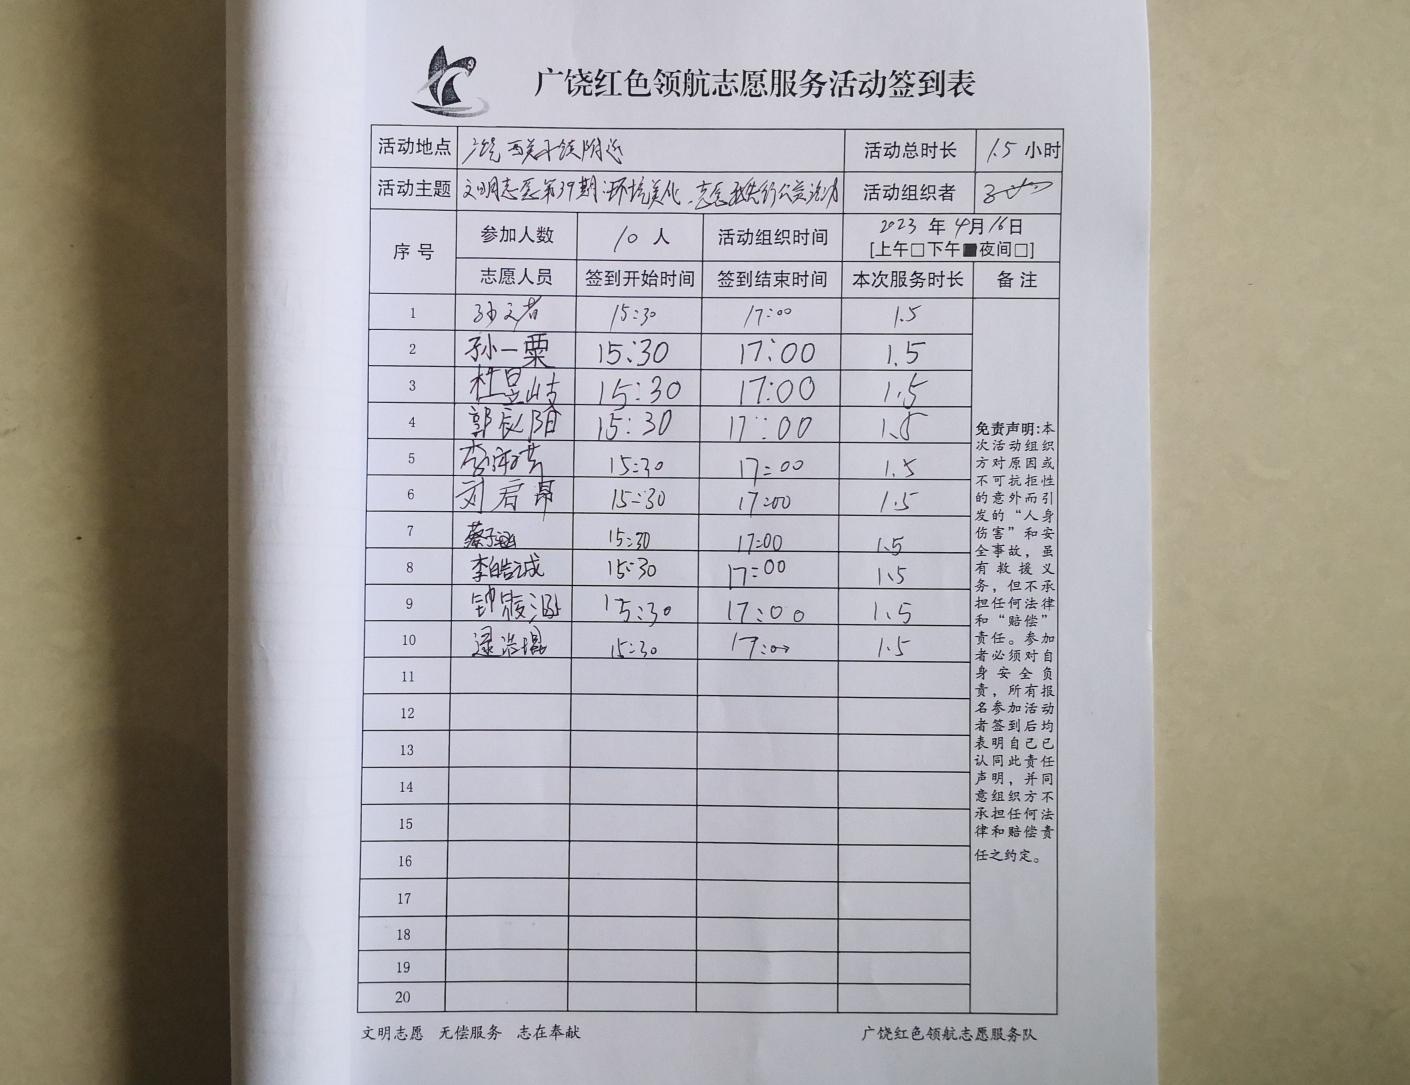 广饶红色领航志愿服务活动签到表
活动地点 广饶 活动总时长 1.5 小时
活动主题 文明志愿第39期:环境美化 活动组织者
序号 参加人数 10 人 活动组织时间 2023 年 4月 16日
[上午□下午■夜间□]
志愿人员 签到开始时间 签到结束时间 本次服务时长 备注
1 孙 15:30 17:00 1.5
2 孙一粟 15:30 17:00 1.5
3 杜昱岐 15:30 17:00 1.5
4 郭辰阳 15:30 17:00 1.5
5 李 15:30 17:00 1.5
6 刘君昂 15:30 17:00 1.5
7 蔡子涵 15:30 17:00 1.5
8 李皓诚 15:30 17:00 1.5
9 钟 15:30 17:00 1.5
10 15:30 17:00 1.5
11
12
13
14
15
16
17
18
19
20
免责声明:本
次活动组织
方对原因或
不可抗拒性
的意外而引
发的“人身
伤害”和安
全事故，虽
有救援义
务，但不承
担任何法律
和“赔偿”
责任。参加
者必须对自
身安全负
责，所有报
名参加活动
者签到后均
表明自己已
认同此责任
声明，并同
意组织方不
承担任何法
律和赔偿责
任之约定。
文明志愿 无偿服务 志在奉献 广饶红色领航志愿服务队